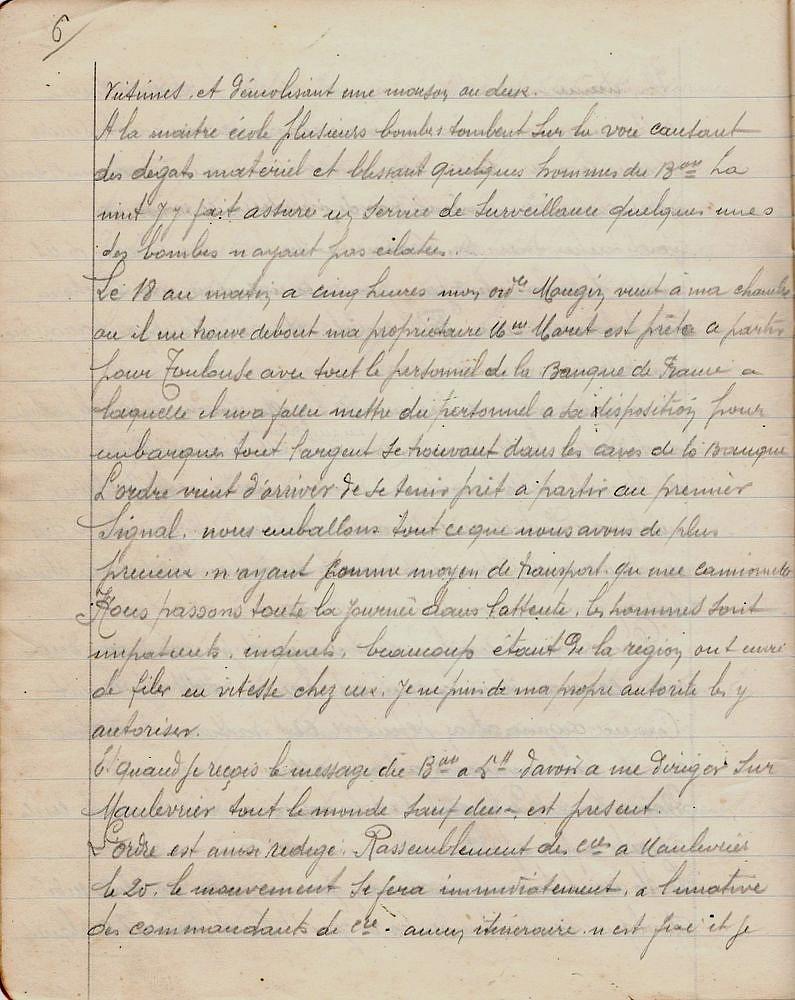 6
victimes. et démolisant une maison ou deux.
A la maitre école plusieurs bombes tombent sur la voie causant
des dégats matériel et blessant quelques hommes du Bon La
nuit j'y fait assure un service de surveillance quelques unes
des bombes n ayant pas eclatés.
Le 18 au matin a cinq heures mon ordce Mougin vient à ma chambre
ou il me trouve debout ma propriétaire Mme Maret est prête a partir
pour Toulouse avec tout le personnel de la Banque de France a
laquelle il m'a fallu mettre du personnel a sa disposition pour
embarquer tout l'argent se trouvant dans les caves de la Banque
L'ordre vient d'arriver de se tenir prêt a partir au premier
signal. nous emballons tout ce que nous avons de plus
precieux. n'ayant comme moyen de transport. qu une camionnette
Nous passons toute la journée dans l'attente. les hommes sont
impatients. inquiets. beaucoup étant de la région ont envie
de filer en vitesse chez eux. Je ne puis de ma propre autorite les y
autoriser.
Et quand je reçois le message du Bon a 5H d'avoir a me diriger sur
Maulevrier tout le monde sauf deux, est present.
L'ordre est ainsi redigé. Rassemblement des cies a Maulevrier
le 20. le mouvement se fera immediatement, a l'iniative
des commandants de cie. aucun itinéraire. n est fixé et je